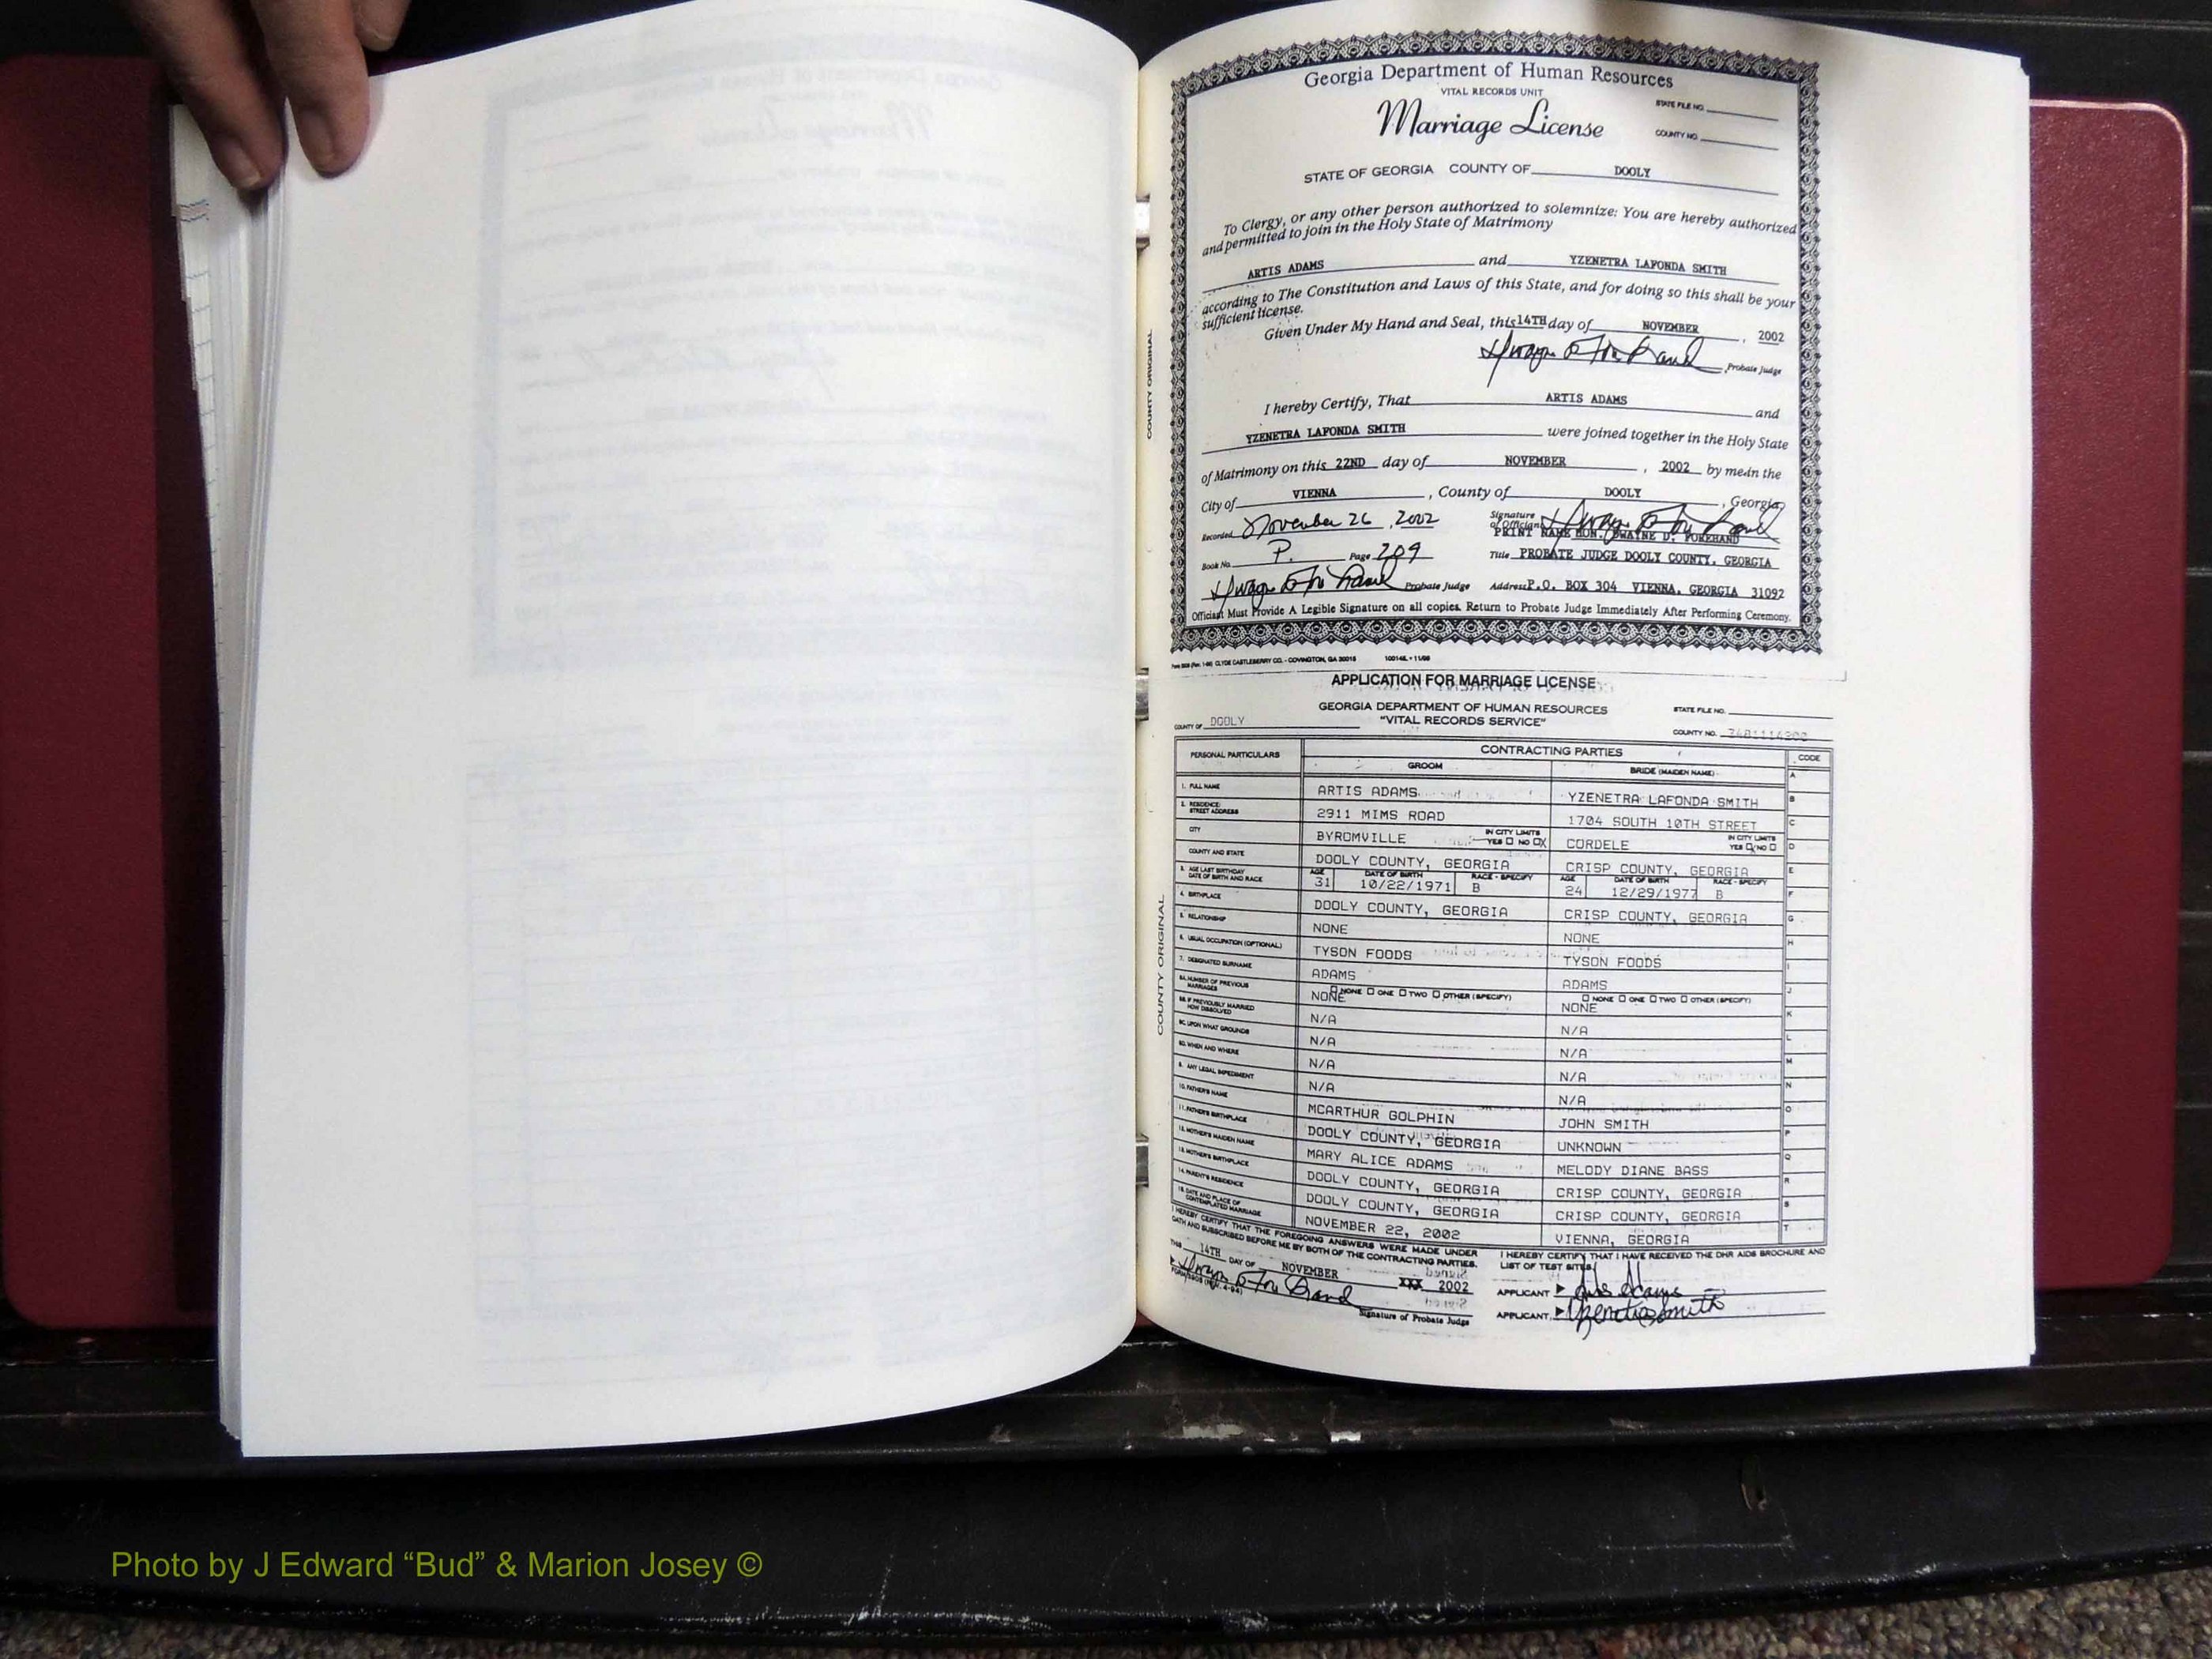 Georgia Department of Human Resources
VITAL RECORDS UNIT
STATE FILE NO.
Marriage License
COUNTY NO.
STATE OF GEORGIA COUNTY OF DOOLY
To Clergy, or any other person authorized to solemnize: You are hereby authorized
and permitted to join in the Holy State of Matrimony
ARTIS ADAMS and YZENETRA LAFONDA SMITH
according to The Constitution and Laws of this State, and for doing so this shall be your
sufficient license.
Given Under My Hand and Seal, this 14TH day of NOVEMBER, 2002
Probate Judge
I hereby Certify, That ARTIS ADAMS and
YZENETRA LAFONDA SMITH were joined together in the Holy State
of Matrimony on this 22ND day of NOVEMBER, 2002 by me in the
City of VIENNA, County of DOOLY, Georgia
Recorded November 26, 2002 Signature of Officiant
PRINT NAME HON. DWAYNE D. FOREHAND
Book No. P. Page 209 Title PROBATE JUDGE DOOLY COUNTY, GEORGIA
Probate Judge Address P.O. BOX 304 VIENNA, GEORGIA 31092
Officiant Must Provide A Legible Signature on all copies. Return to Probate Judge Immediately After Performing Ceremony.
CLYDE CASTLEBERRY CO. - COVINGTON, GA 30015
COUNTY ORIGINAL
APPLICATION FOR MARRIAGE LICENSE
GEORGIA DEPARTMENT OF HUMAN RESOURCES STATE FILE NO.
COUNTY OF DOOLY "VITAL RECORDS SERVICE"
COUNTY NO.
PERSONAL PARTICULARS CONTRACTING PARTIES CODE
GROOM BRIDE (MAIDEN NAME) A
1. FULL NAME ARTIS ADAMS YZENETRA LAFONDA SMITH B
2. RESIDENCE STREET ADDRESS 2911 MIMS ROAD 1704 SOUTH 10TH STREET C
CITY BYROMVILLE IN CITY LIMITS YES NO X CORDELE IN CITY LIMITS YES X NO D
COUNTY AND STATE DOOLY COUNTY, GEORGIA CRISP COUNTY, GEORGIA E
3. AGE LAST BIRTHDAY DATE OF BIRTH AND RACE AGE 31 DATE OF BIRTH 10/22/1971 RACE - SPECIFY B AGE 24 DATE OF BIRTH 12/29/1977 RACE - SPECIFY B F
4. BIRTHPLACE DOOLY COUNTY, GEORGIA CRISP COUNTY, GEORGIA G
5. RELATIONSHIP NONE NONE H
6. USUAL OCCUPATION (OPTIONAL) TYSON FOODS TYSON FOODS I
7. DESIGNATED SURNAME ADAMS ADAMS J
8A. NUMBER OF PREVIOUS MARRIAGES NONE NONE ONE TWO OTHER (SPECIFY) NONE NONE ONE TWO OTHER (SPECIFY) K
8B. IF PREVIOUSLY MARRIED HOW DISSOLVED N/A N/A L
8C. UPON WHAT GROUNDS N/A N/A M
8D. WHEN AND WHERE N/A N/A N
9. ANY LEGAL IMPEDIMENT N/A N/A O
10. FATHER'S NAME MCARTHUR GOLPHIN JOHN SMITH P
11. FATHER'S BIRTHPLACE DOOLY COUNTY, GEORGIA UNKNOWN Q
12. MOTHER'S MAIDEN NAME MARY ALICE ADAMS MELODY DIANE BASS R
13. MOTHER'S BIRTHPLACE DOOLY COUNTY, GEORGIA CRISP COUNTY, GEORGIA S
14. PARENT'S RESIDENCE DOOLY COUNTY, GEORGIA CRISP COUNTY, GEORGIA T
15. DATE AND PLACE OF CONTEMPLATED MARRIAGE NOVEMBER 22, 2002 VIENNA, GEORGIA
I HEREBY CERTIFY THAT THE FOREGOING ANSWERS WERE MADE UNDER
OATH AND SUBSCRIBED BEFORE ME BY BOTH OF THE CONTRACTING PARTIES.
THIS 14TH DAY OF NOVEMBER XXX 2002
Signature of Probate Judge
I HEREBY CERTIFY THAT I HAVE RECEIVED THE DHR AIDS BROCHURE AND
LIST OF TEST SITES.
APPLICANT
APPLICANT
COUNTY ORIGINAL
Photo by J Edward “Bud” & Marion Josey ©